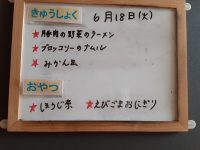 きゅうしょく
6月18日(火)
★豚肉の野菜のラーメン
★ブロッコリーのナムル
★みかん缶
おやつ
★ほうじ茶 ★えびごまおにぎり